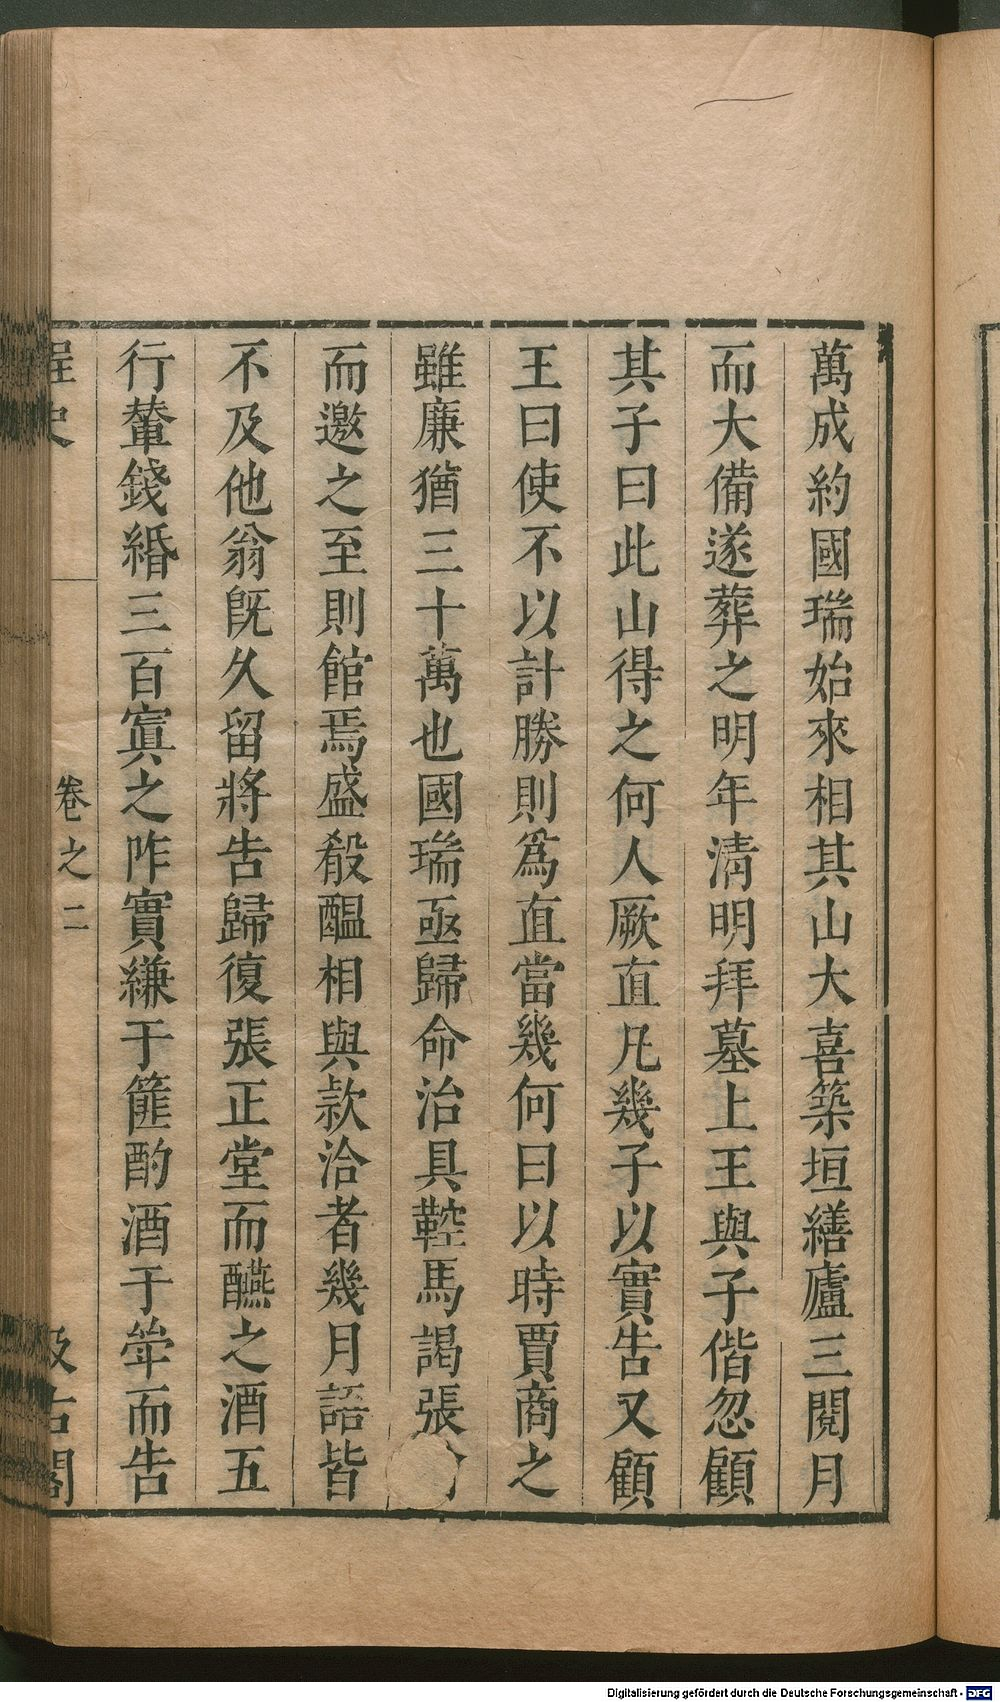 萬成約國瑞始來相其山大喜築垣繕廬三閱月
而大備遂葬之明年清明拜墓上王與子偕忽顧
其子曰此山得之何人厥直凡幾子以實告又顧
王曰使不以計勝則為直當幾何曰以時賈商之
雖廉猶三十萬也國瑞亟歸命治具鞚馬謁張
而邀之至則館焉盛殽醖相與款洽者幾月語皆
不及他翁旣久留將告歸復張正堂而醼之酒五
行輦錢緡三百寘之阼實縑于篚酌酒于斝而告
桯史
卷之二
汲古閣
Digitalisierung gefördert durch die Deutsche Forschungsgemeinschaft - DFG